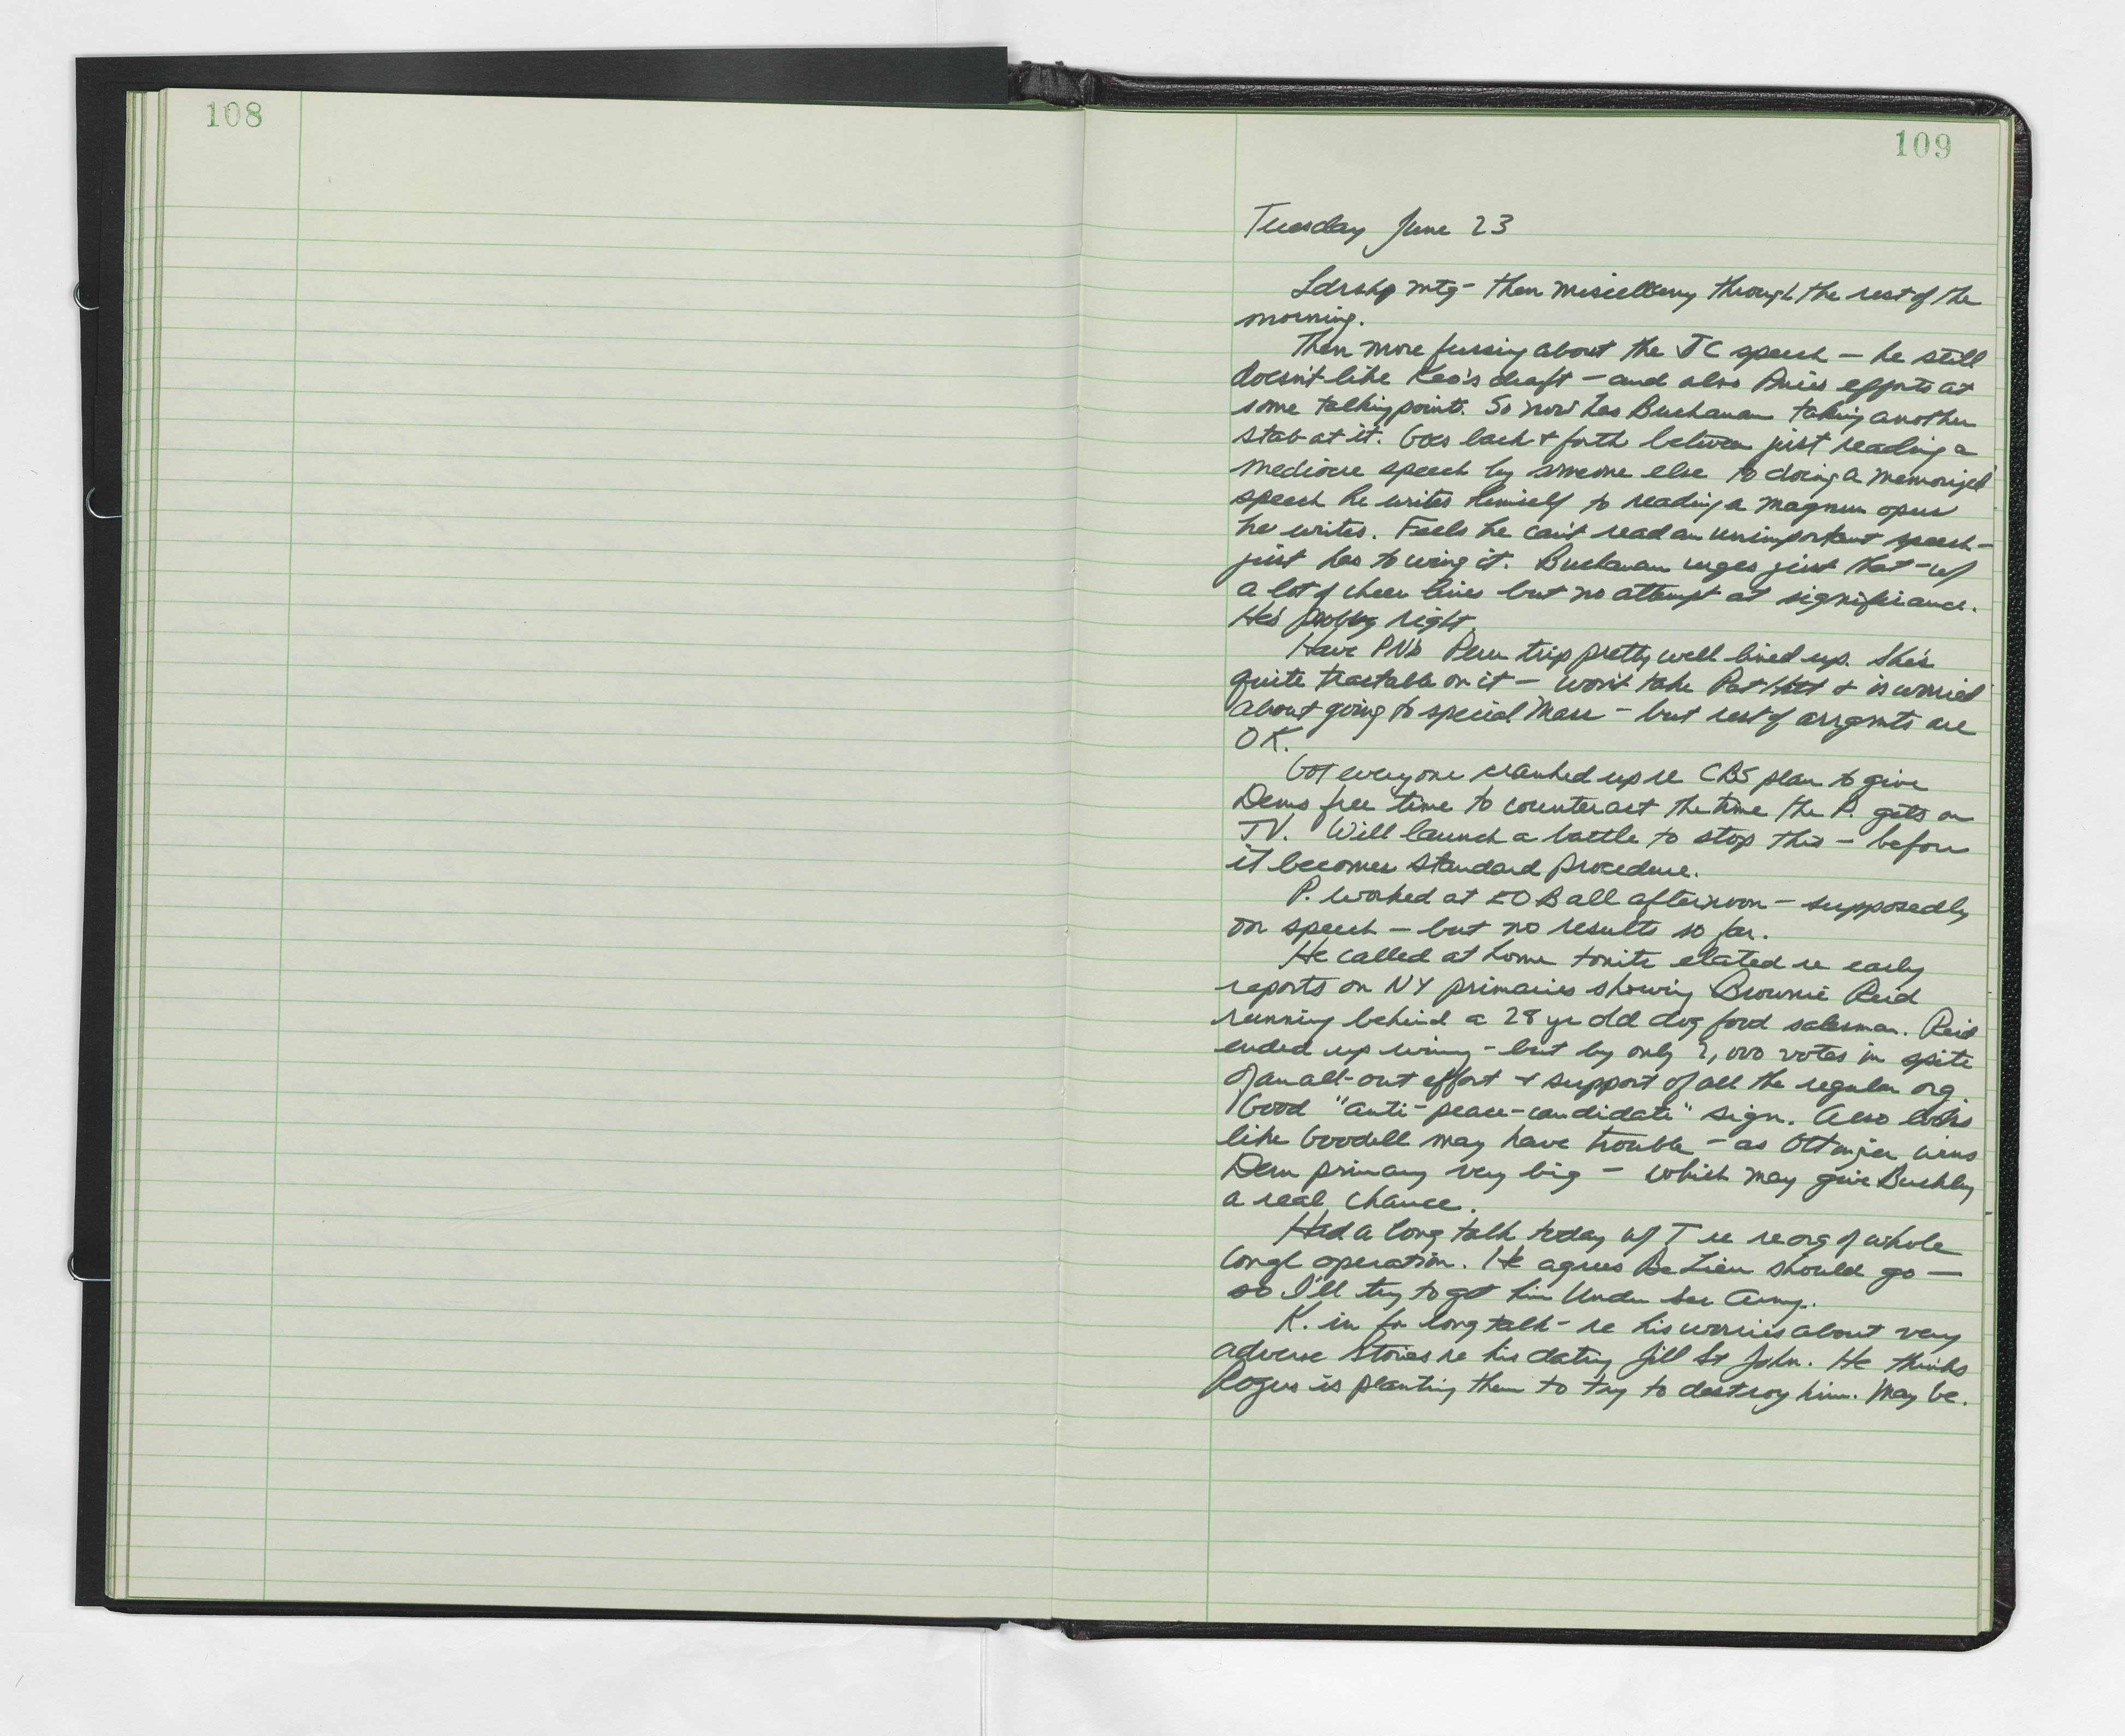 108
109
Tuesday June 23
Ldrshp mtg - then miscellany through the rest of the
morning.
Then more fussing about the JC speech — he still
doesn't like Keo's draft — and also Price's efforts at
some talking points. So now has Buchanan taking another
stab at it. Goes back & forth between just reading a
mediocre speech by someone else to doing a memorized
speech he writes himself to reading a magnum opus
he writes. Feels he can't read an unimportant speech -
just has to wing it. Buchanan urges just that - w/
a lot of cheer lines but no attempt at significance.
He's probbly right.
Have PN's Peru trip pretty well lined up. She's
quite tractable on it — won't take Pat Hitt & is worried
about going to special Mass - but rest of arrgmts are
OK.
Got everyone cranked up re CBS plan to give
Dems free time to counteract the time the P. gets on
TV. Will launch a battle to stop this - before
it becomes standard procedure.
P. worked at EOB all afternoon - supposedly
on speech — but no results so far.
He called at home tonite elated re early
reports on NY primaries showing Brownie Reid
running behind a 28 yr old dog food salesman. Reid
ended up wing - but by only 2,000 votes in spite
of an all-out effort & support of all the regular org.
Good "anti-peace-candidate" sign. Also looks
like Goodell may have trouble - as Ottinger wins
Dem primary very big — which may give Buckley
a real chance.
Had a long talk today w/ T re reorg of whole
congl operation. He agrees BeLieu should go —
so I'll try to get him Under Sec Army.
K. in for long talk - re his worries about very
adverse stories re his dating Jill St John. He thinks
Rogers is planting them to try to destroy him. May be.